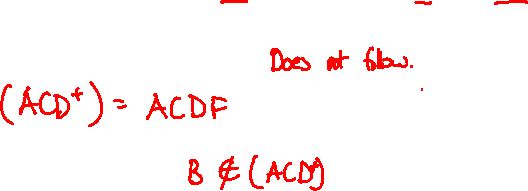 Does not follow.
(ACD⁺) = ACDF
B ∉ (ACD⁺)